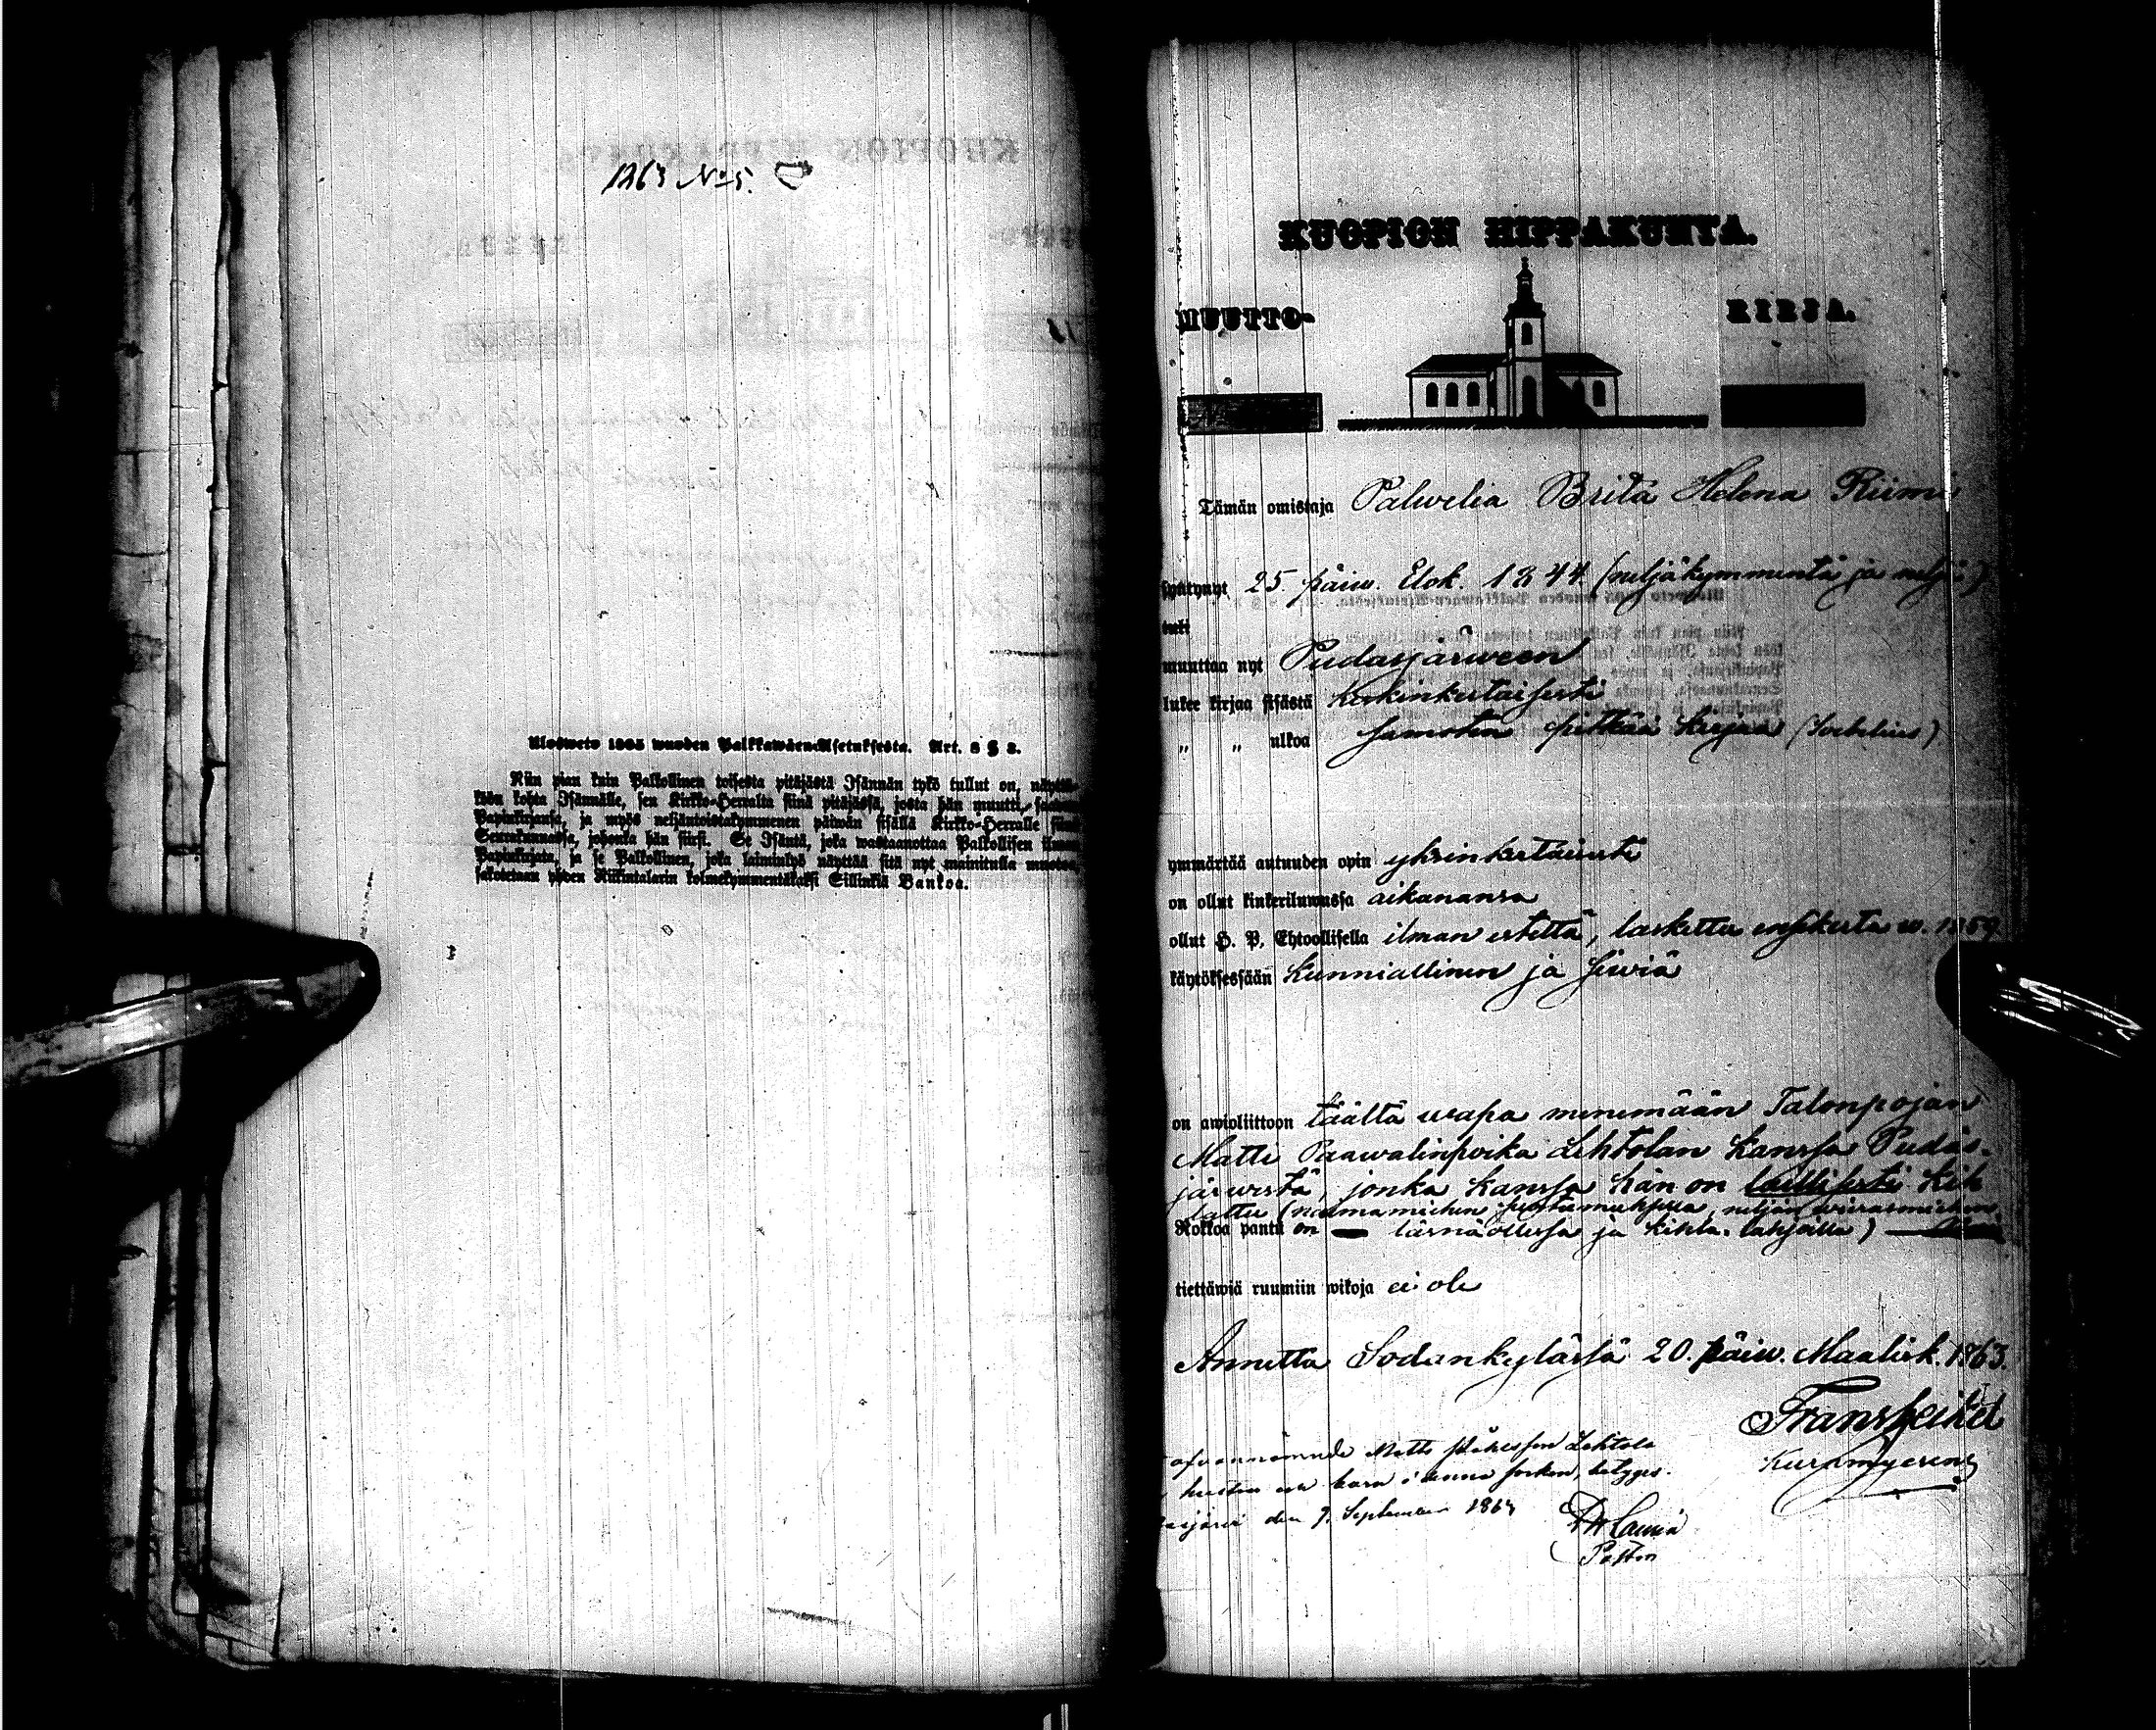 1863 No 5.
Ulosweto 1805 wuoden Palkkawäen-Asetuksesta. Art. 8 § 2.
Niin pian kuin Palkollinen toisesta pitäjästä Isännän tykö tullut on, näyttä-
köön kohta Isännälle, sen Kirkko-Herralta siinä pitäjässä, josta hän muutti,
Papinkirjansa, ja myös neljäntoistakymmenen päiwän sisällä Kirkko-Herralle siinä
Seurakunnassa, johonka hän siirsi. Se Isäntä, joka wastaanottaa Palkollisen ilman
Papinkirjata, ja se Palkollinen, joka laiminlyö näyttää sitä nyt mainitulla muotoa,
sakotetaan yhden Riikintalarin kolmekymmentäkaksi Sillinkiä Bankoa.
KUOPION HIPPAKUNTA.
MUUTTO- KIRJA.
Tämän omistaja Palwelia Brita Helena Riimi
syntynyt 25 päiw. Elok. 1844 (neljäkymmentä ja neljä)
tuli
muuttaa nyt Pudasjärween
lukee kirjaa sisästä keskinkertaisesti
„ „ ulkoa samoten pitkää kirjaa
ymmärtää autuuden opin yksinkertaisesti
on ollut kinkeriluwussa aikanansa
ollut H. P. Ehtoollisella ilman estettä, laskettu ensikerta w. 1859
käytöksessään kunniallinen ja siwiä
on awioliittoon täältä wapa menemään Talonpojan
Matti Paawalinpoika Lehtolan kanssa Pudas-
järwestä, jonka kanssa hän on laillisesti kih
lattu (naimamiehen puhemiehen, neljän wierasmiehen
Rokkoa pantu on läsnäollessa ja kihla-lahjoilla)
tiettäwiä ruumiin wikoja ei ole
Annettu Sodankylässä 20. päiw. Maalisk. 1863.
Frans Heikel
ofvannämnde Matts Påhlsson Lehtola
hustru vara i denna socken, betyges.
den 9. September 1864
Pastor